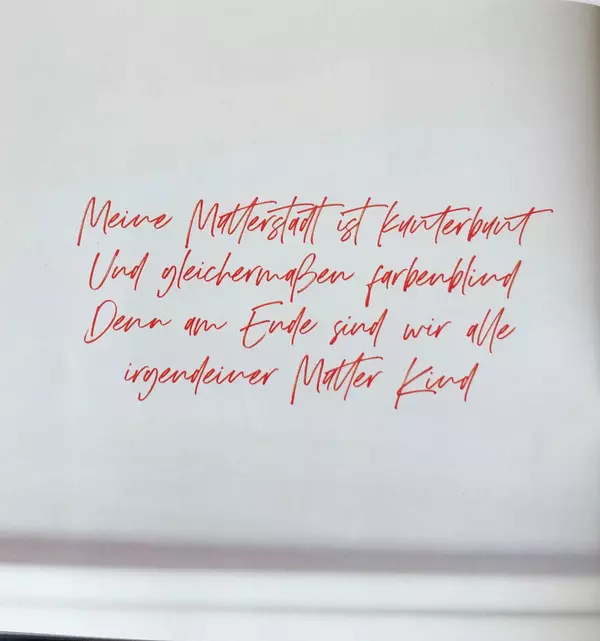 Meine Mutterstadt ist kunterbunt
Und gleichermaßen farbenblind
Denn am Ende sind wir alle
irgendeiner Mutter Kind